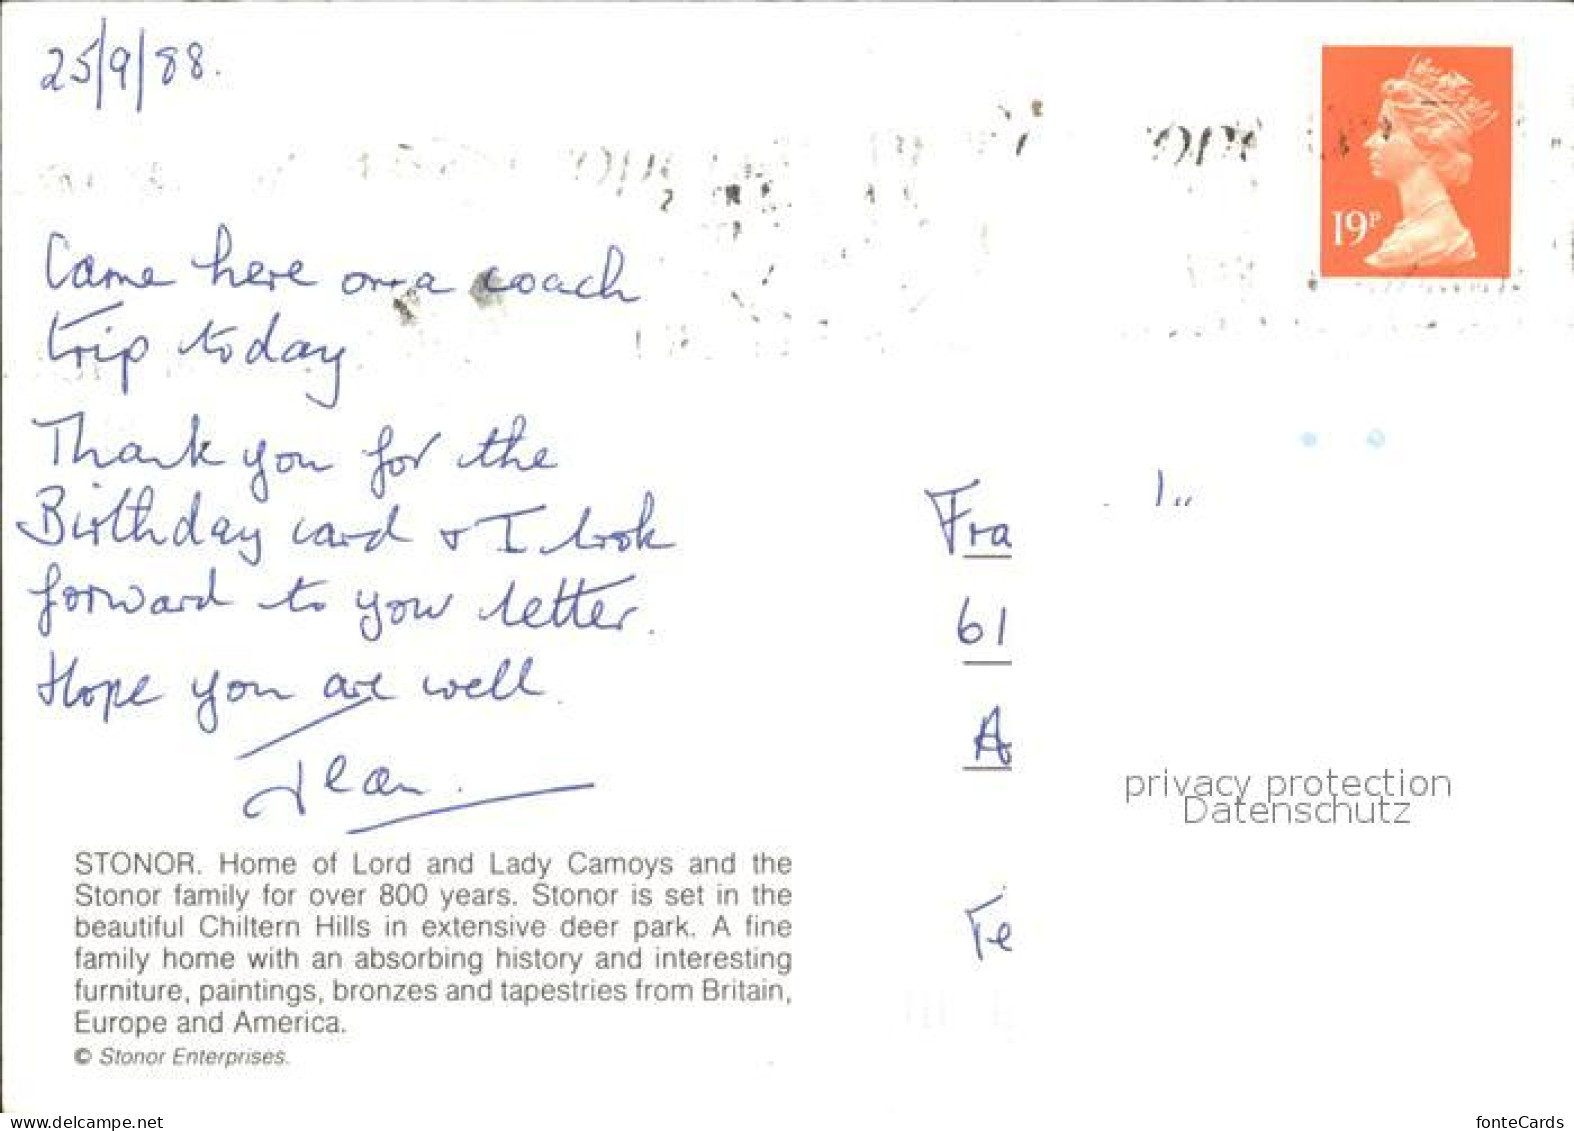 25/9/88.
19P
Came here on a coach
trip today
Thank you for the
Birthday card & I look
forward to your letter.
Hope you are well.
Jean.
Fra
61
A
Fe
privacy protection
Datenschutz
STONOR. Home of Lord and Lady Camoys and the
Stonor family for over 800 years. Stonor is set in the
beautiful Chiltern Hills in extensive deer park. A fine
family home with an absorbing history and interesting
furniture, paintings, bronzes and tapestries from Britain,
Europe and America.
© Stonor Enterprises.
www.delcampe.net
fonteCards